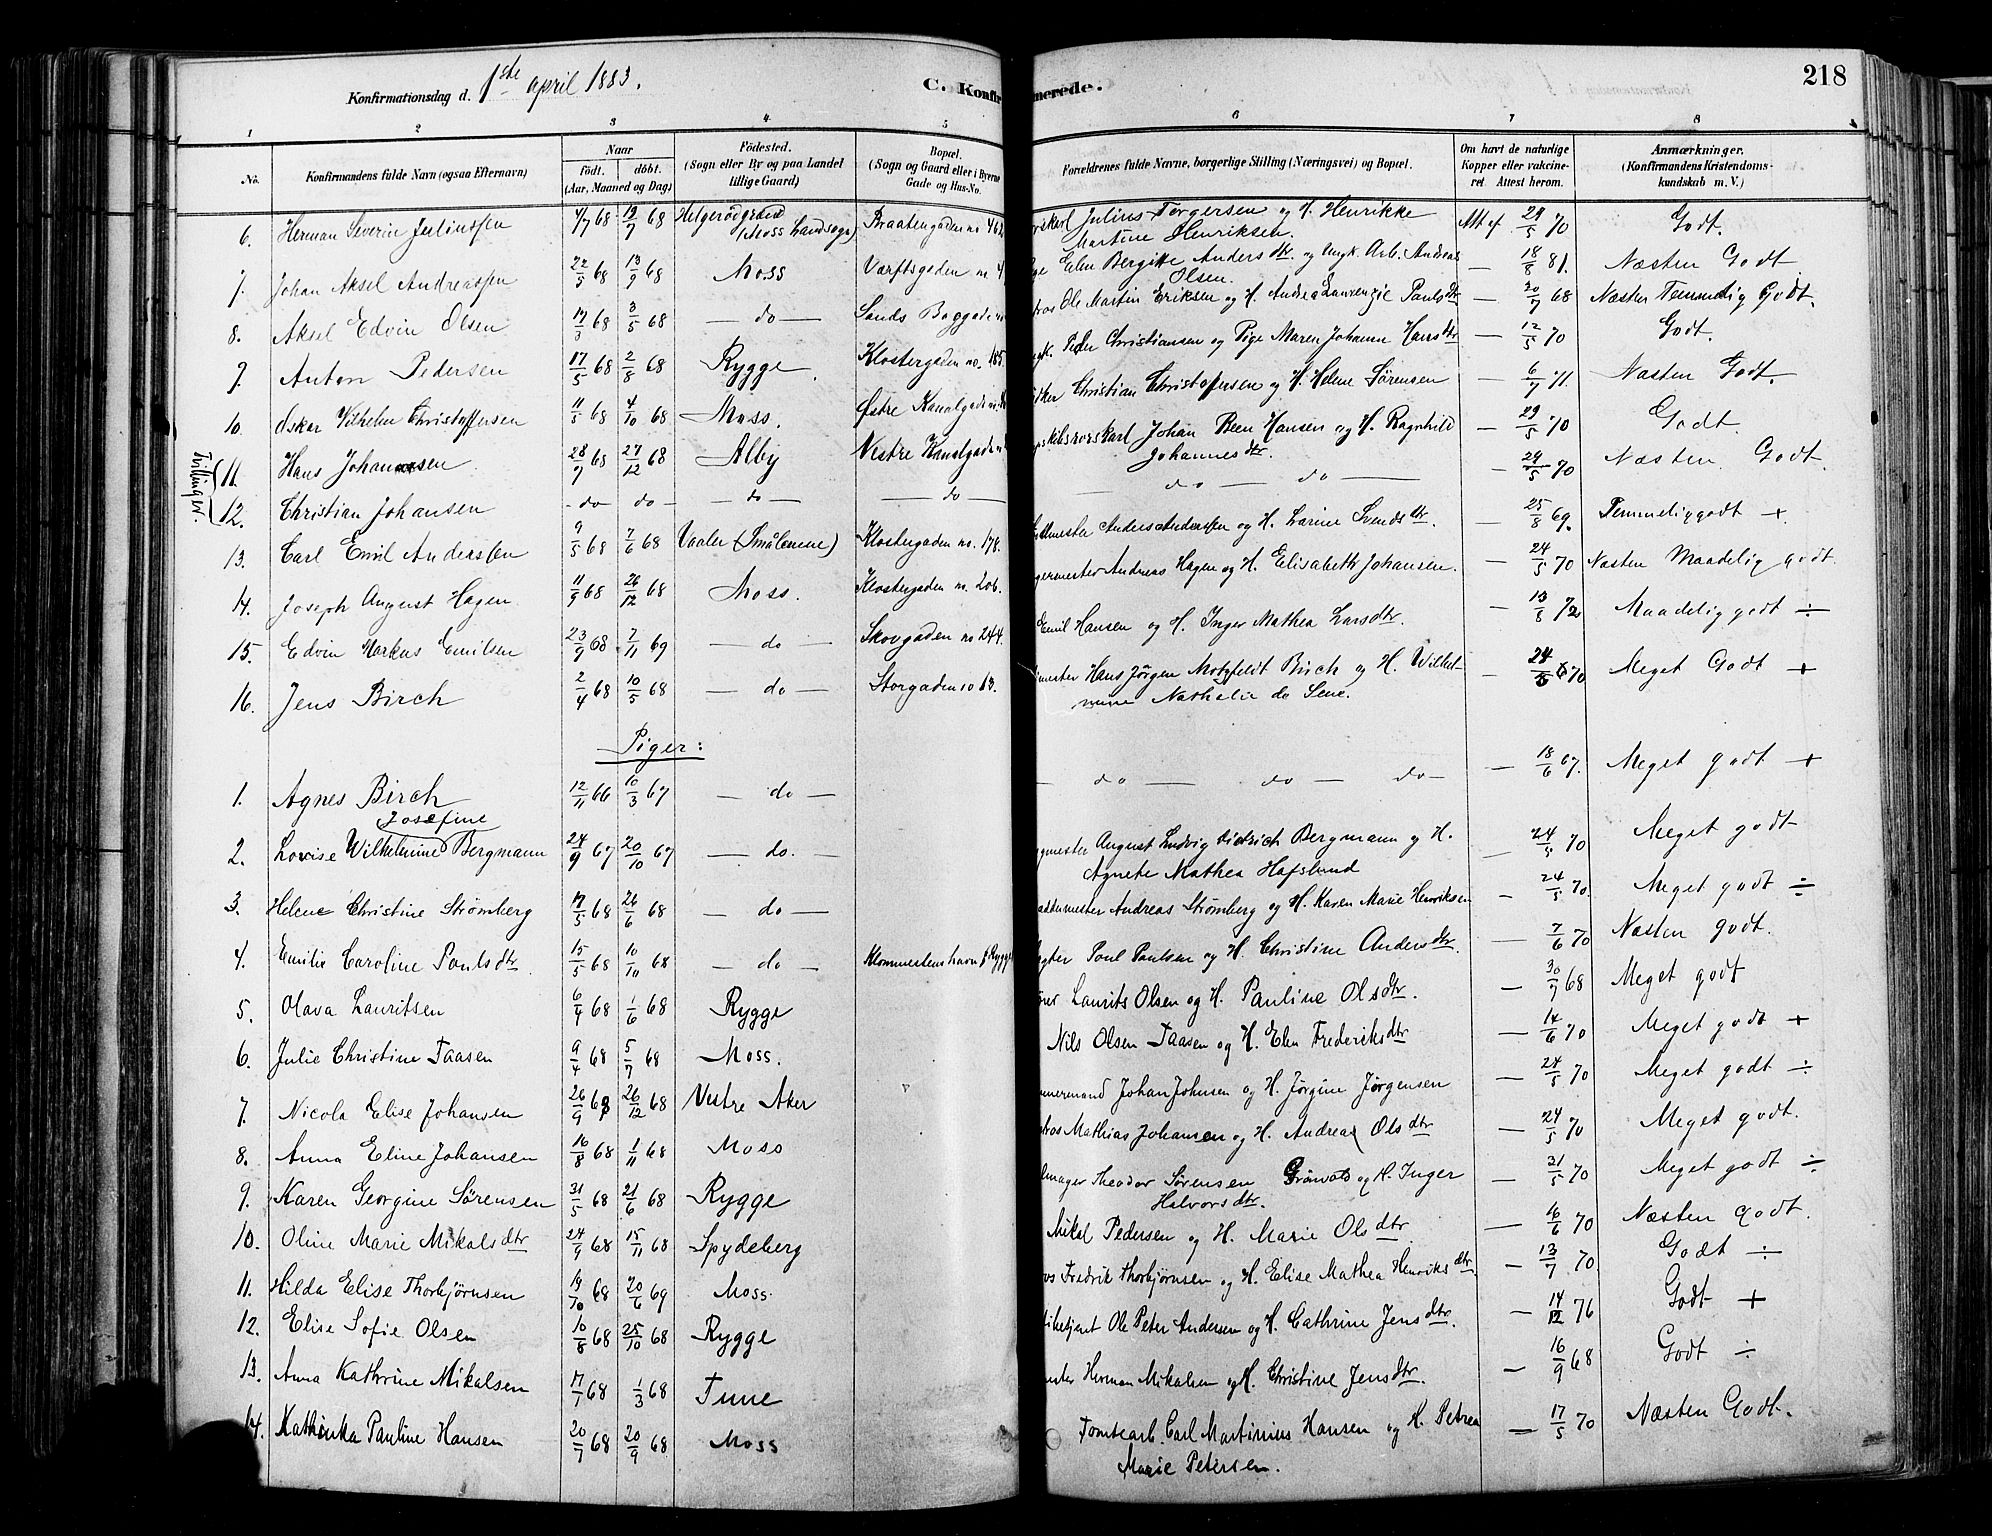 218
Konfirmationsdag d. 1ste april 1883.
C. Konfirmerede.
1 2 3 4 5 6 7 8
No.
Konfirmandens fulde Navn (ogsaa Efternavn)
Naar
Født. døbt.
(Aar, Maaned og Dag)
Fødested.
(Sogn eller By og paa Landet
tillige Gaard)
Bopæl.
(Sogn og Gaard eller i Byerne
Gade og Hus-No.
Forældrenes fulde Navne, borgerlige Stilling (Næringsvei) og Bopæl.
Om havt de naturlige
Kopper eller vakcine-
ret Attest herom.
Anmærkninger.
(Konfirmandens Kristendoms-
kundskab m. V.)
6. Herman Severin Juliussen 4/7 68 19/7 68 Helgerødgrind (Moss Landsogn) Braatengaden no Julius Torgersen og H. Henrikke Att af 29/5 70 Godt.
Martine Henriksen.
7. Johan Aksel Andreassen 22/5 68 13/9 68 Moss Værftsgaden no. Elen Bergitte Anders dtr. og Ungk. Arb. Andreas — 18/8 81. Næsten Godt
Olsen.
8. Aksel Edvin Olsen 17/3 68 3/5 68 — do — Sands Baggade Ole Martin Eriksen og H. Andrea Laurenzie Pauls dtr — 20/7 68 Næsten Temmelig Godt.
9. Anton Pedersen 17/5 68 2/8 68 Rygge Klostergaden no. 185. Peder Christiansen og Pige Maren Johanne Hans dtr — 12/5 70 Godt.
10. Oskar Vilhelm Christoffersen 11/5 68 4/10 68 Moss. Østre Kanalgade Christian Christofersen og H. Helene Sørensen — 6/7 71. Næsten Godt.
Tvillinger.
11. Hans Johansen 28/7 68 27/12 68 Alby Vestre Kanalgade Johan Been Hansen og H. Ragnhild — 29/5 70 Godt
Johannes dtr.
12. Christian Johansen - do - do - — do — — do — — do — do — — 29/5 70 Næsten Godt.
13. Carl Emil Anderssen 9/5 68 7/6 68 Vaaler (Smålenene) Klostergaden no. 178. Anders Anderssen og H. Larine Svends dtr. — 25/8 69. Temmelig godt +
14. Joseph August Hagen 11/9 68 26/12 68 Moss. Klostergaden no. 206. Andreas Hagen og H. Elisabeth Johansen. — 24/5 70 Næsten Maadelig godt.
15. Edvin Markus Emilsen 23/9 68 7/11 69 — do — Skovgaden no 244. Emil Hansen og H. Inger Mathea Lars dtr. — 13/8 72 Maadelig godt ÷
16. Jens Birch 2/4 68 10/5 68 — do — Storgaden no 63. Hans Jørgen Motzfeldt Birch og H. Wilhel- — 24/5 70 Meget Godt +
mine Nathalie do Sene.
Piger:
1. Agnes Birch 12/11 66 10/3 67 — do — — do — do — do — — 18/6 67. Meget godt +
2. Lovise Wilhelmine Josefine Bergmann 24/9 67 20/10 67 — do. — August Ludvig Didrich Bergmann og H. — 24/5 70 Meget godt
Agnete Mathea Hafslund
3. Helene Christine Strømberg 17/5 68 26/6 68 — do — Andreas Strømberg og H. Karen Marie Henriksen — 24/5 70. Meget godt ÷
4. Emilie Caroline Pauls dtr 15/5 68 10/10 68 — do — Poul Paulsen og H. Christine Anders dtr. — 7/6 70 Næsten godt.
5. Olava Lauritsen 6/4 68 1/6 68 Rygge Laurits Olsen og H. Pauline Ols dtr. — 30/7 68 Meget godt
6. Julie Christine Taasen 9/4 68 5/7 68 Moss. Nils Olsen Taasen og H. Elen Frederiks dtr — 14/6 70 Meget godt +
7. Nicola Elise Johansen 26/9 68 26/12 68 Vestre Aker Johan Johnsen og H. Jørgine Jørgensen — 24/5 70 Meget godt ÷
8. Anna Eline Johansen 16/8 68 1/11 68 Moss Mathias Johansen og H. Andrea Ols dtr — 24/5 70 Meget godt.
9. Karen Georgine Sørensen 31/5 68 21/6 68 Rygge Theodor Sørensen Grønvold og H. Inger — 31/5 70 Meget godt ÷
Halvors dtr.
10. Oline Marie Mikals dtr 24/9 68 15/11 68 Spydeberg Mikal Pedersen og H. Marie Ols dtr — 16/6 70 Næsten godt.
11. Hilda Elise Thorbjørnsen 19/10 68 20/6 69 Moss. Fredrik Thorbjørnsen og H. Elise Mathea Henriks dtr. — 13/7 70. Godt ÷
12. Elise Sofie Olsen 10/8 68 25/10 68 Rygge Ole Peter Andersen og H. Cathrine Jens dtr. — 14/12 76 Godt +
13. Anna Kathrine Mikalsen 17/1 68 1/3 68 Tune Herman Mikalsen og H. Christine Jens dtr. — 16/9 68 Godt ÷
14. Kathinka Pauline Hansen 20/7 68 20/9 68 Moss Tomtearb. Carl Martinius Hansen og H. Petrea — 17/5 70 Næsten Godt.
Marie Petersen.